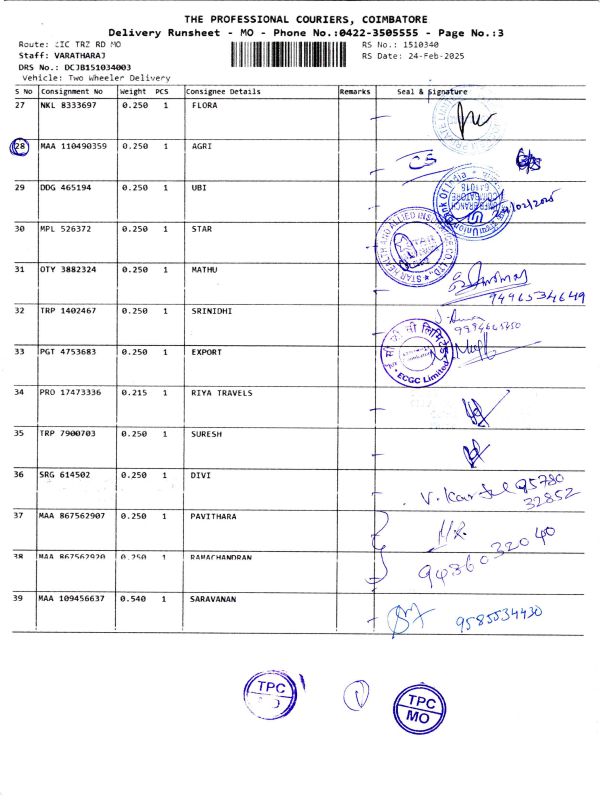 THE PROFESSIONAL COURIERS, COIMBATORE
Delivery Runsheet - MO - Phone No.:0422-3505555 - Page No.:3
Route: CIC TRZ RD MO
RS No.: 1510340
Staff: VARATHARAJ
RS Date: 24-Feb-2025
DRS No.: DCJB151034003
Vehicle: Two Wheeler Delivery
S No Consignment No Weight PCS Consignee Details Remarks Seal & Signature
27 NKL 8333697 0.250 1 FLORA
28 MAA 110490359 0.250 1 AGRI
CS
29 DDG 465194 0.250 1 UBI
24/02/2025
30 MPL 526372 0.250 1 STAR
STAR HEALTH AND ALLIED INSURANCE CO. LTD.
31 OTY 3882324 0.250 1 MATHU
9496534649
32 TRP 1402467 0.250 1 SRINIDHI
33 PGT 4753683 0.250 1 EXPORT
ECGC Limited
34 PRO 17473336 0.215 1 RIYA TRAVELS
35 TRP 7900703 0.250 1 SURESH
36 SRG 614502 0.250 1 DIVI
95780
32852
37 MAA 867562907 0.250 1 PAVITHARA
38 MAA 867562920 0.250 1 RAMACHANDRAN
9436032040
39 MAA 109456637 0.540 1 SARAVANAN
9585534430
TPC
TPC
MO